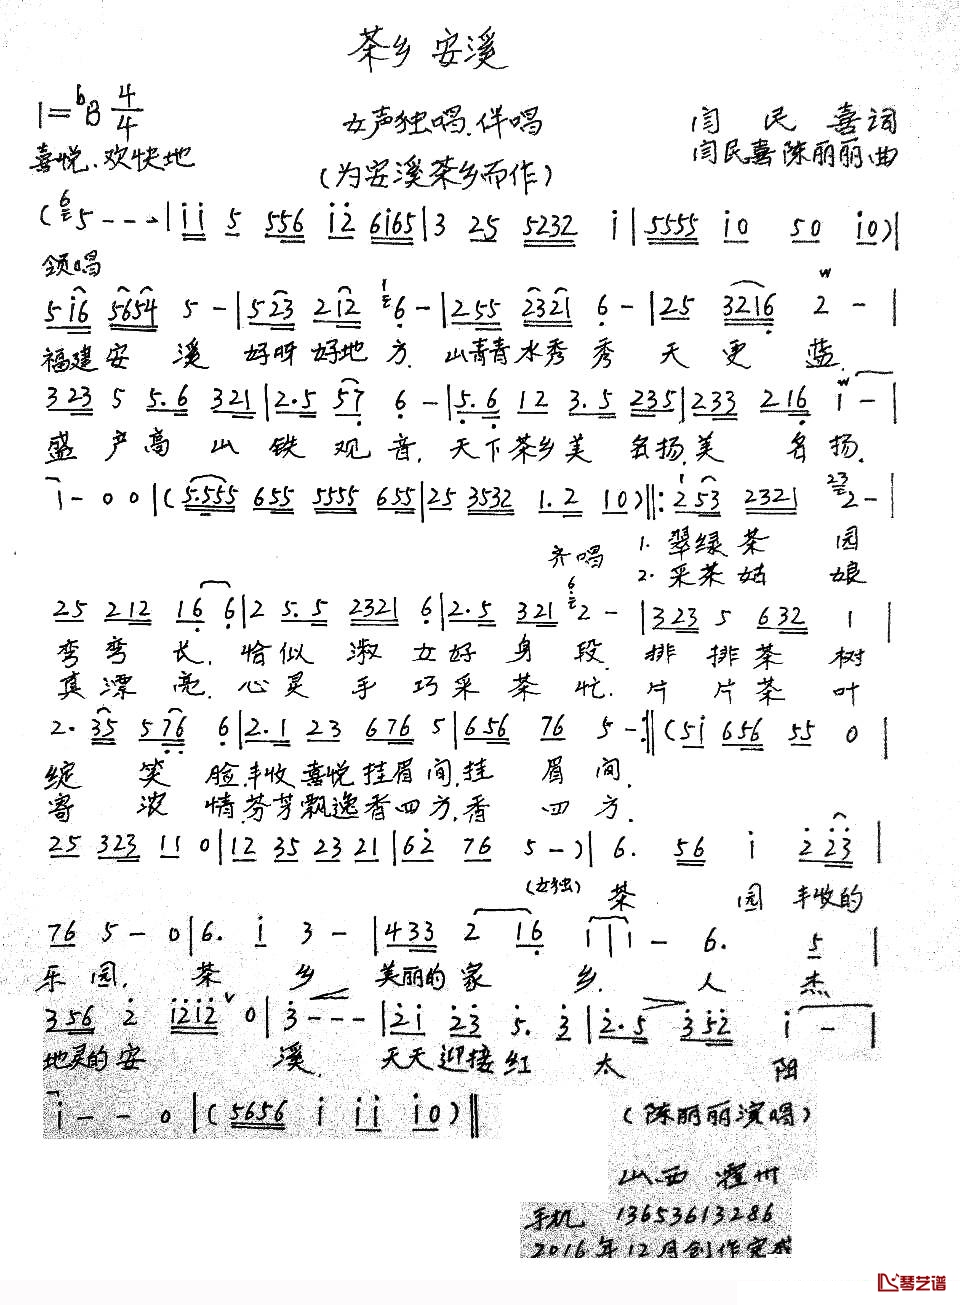 茶乡 安溪
1=♭B 4/4
女声独唱.伴唱
闫 民 喜 词
喜悦、欢快地
闫民喜 陈丽丽 曲
(为安溪茶乡而作)
(5 - - - | i i 5 5 5 6 i 2 6 i 6 5 | 3 2 5 5 2 3 2 i | 5 5 5 5 i 0 5 0 i 0) |
领唱
5 i 6 5 6 5 4 5 - | 5 2 3 2 1 2 6 - | 2 5 5 2 3 2 1 6 - | 2 5 3 2 1 6 2 - |
福建 安 溪 好呀 好地 方. 山青青 水秀 秀 天 更 蓝.
3 2 3 5 5. 6 3 2 1 | 2. 5 5 7 6 - | 5. 6 1 2 3. 5 2 3 5 | 2 3 3 2 1 6 i - |
盛 产 高 山 铁 观 音. 天下 茶乡 美 名扬.美 名 扬.
i - 0 0 | (5. 5 5 5 6 5 5 5 5 5 5 6 5 5 | 2 5 3 5 3 2 1. 2 1 0) ‖: 2 5 3 2 3 2 1 2 - |
1. 翠绿 茶 园
齐唱
2. 采茶 姑 娘
2 5 2 1 2 1 6 6 | 2 5. 5 2 3 2 1 6 | 2. 5 3 2 1 2 - | 3 2 3 5 6 3 2 1 |
弯 弯 长. 恰 似 淑 女 好 身 段. 排 排 茶 树
真 漂 亮. 心 灵 手 巧 采 茶 忙. 片 片 茶 叶
2. 3 5 5 7 6 6 | 2. 1 2 3 6 7 6 5 | 6 5 6 7 6 5 - :‖ (5 i 6 5 6 5 5 0 |
绽 笑 脸.丰收 喜悦 挂眉 间.挂 眉 间.
寄 浓 情.芬芳 飘逸 香四 方.香 四 方.
2 5 3 2 3 1 1 0 | 1 2 3 5 2 3 2 1 | 6 2 7 6 5 -) | 6. 5 6 i 2 2 3 |
(女独) 茶 园 丰收的
7 6 5 - 0 | 6. i 3 - | 4 3 3 2 1 6 | 1 1 - 6. 5 |
乐 园. 茶 乡 美丽的 家 乡. 人 杰
3 5 6 2 i 2 i 2 0 | 3 - - - | 2 i 2 3 5. 3 | 2. 5 3 5 2 i - |
地灵的 安 溪. 天天 迎接 红 太 阳
i - - 0 | (5 6 5 6 i i i i 0) ‖
(陈丽丽演唱)
山西 霍州
手机 13653613286
2016年12月创作完成
琴艺谱